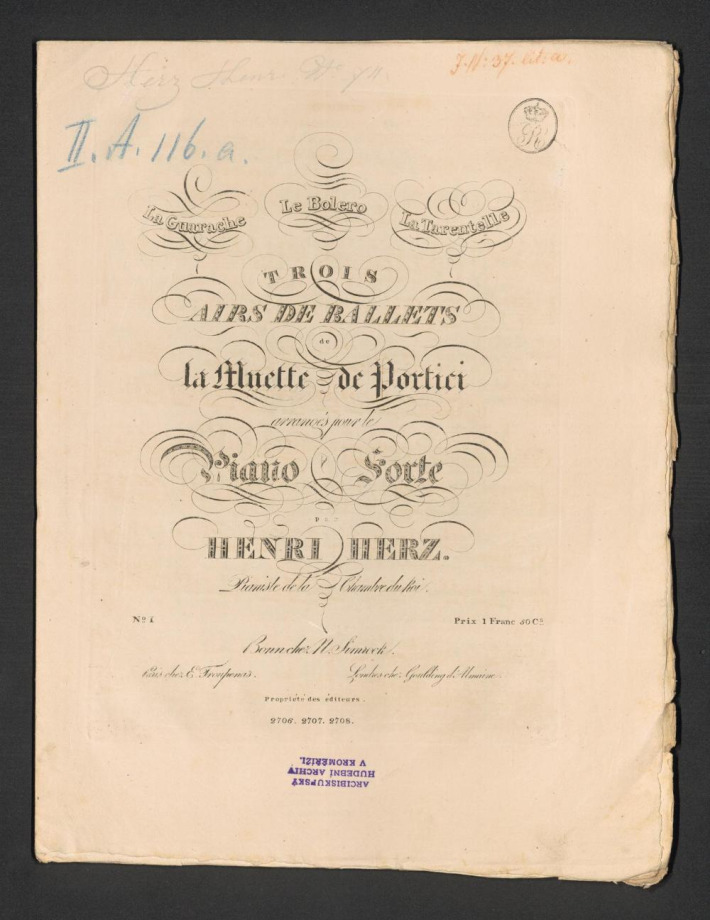 Herz Henri No
J. N: 37. lit. a.
II. A. 116. a.
La Guarache
Le Bolero
La Tarentelle
TROIS
AIRS DE BALLETS
de
la Muette de Portici
arrangés pour le
Piano Forte
PAR
HENRI HERZ.
Pianiste de la Chambre du Roi.
No. 1
Prix 1 Franc 50 Cs.
Bonn chez N. Simrock.
Paris chez E. Troupenas.
Londres chez Goulding d'Almaine.
Propriété des éditeurs.
2706. 2707. 2708.
ARCIBISKUPSKÝ
HUDEBNÍ ARCHIV
V KROMĚŘÍŽI.